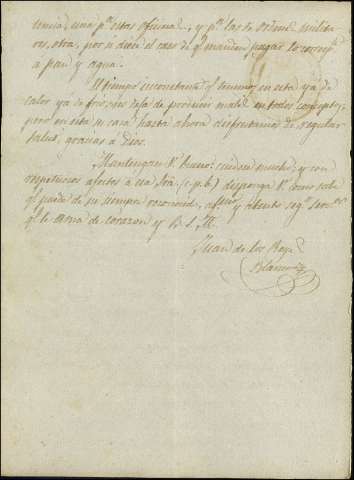 tencia, una pª estas oficinas, y pª las de ordenes milita
res, otra, por si diera el caso de qe mandan pagar lo corresp.
a pan y agua.
El tiempo inconstante qe tenemos en esta yá de
calor yá de frio, no deja de producir males en todos conceptos,
pero en esta su casa hasta ahora disfrutamos de regular
salud, gracias a Dios.
Mantengase V. bueno: cuidese mucho, y con
respetuosos afectos a esa Sra. (c.p.b.) disponga V. como sabe
qe puede de su siempre reconocido, affmo y atento segº servor
qe le ama de corazon y B.S.M.
Juan de los Reyes
Blanco